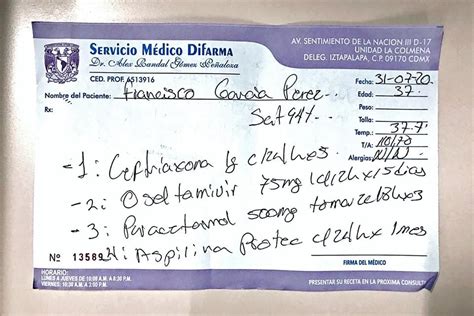 Servicio Médico Difarma
Dr. Alex Randal Gómez Peñaloza
CED. PROF. 6513916
AV. SENTIMIENTO DE LA NACION III D-17
UNIDAD LA COLMENA
DELEG. IZTAPALAPA, C.P. 09170 CDMX
Nombre del Paciente: Francisco Garcia Perez
Fecha: 31-07-20
Rx:
Edad: 37
Sat 94%
Talla:
Peso:
Temp.: 37.7
T/A: 110/70
Alergias:
- 1: Ceftriaxona 1g c/24h x 3
- 2: Oseltamivir 75mg 1 c/12h x 5 dias
- 3: Paracetamol 500mg tomar c/8h x 3
4: Aspilina Protec c/24h x 1 mes
Nº 13589
FIRMA DEL MÉDICO
HORARIO:
LUNES A JUEVES DE 10:00 A.M. A 8:30 P.M.
VIERNES: 10:00 A.M. A 2:00 P.M.
PRESENTAR SU RECETA EN LA PROXIMA CONSULTA